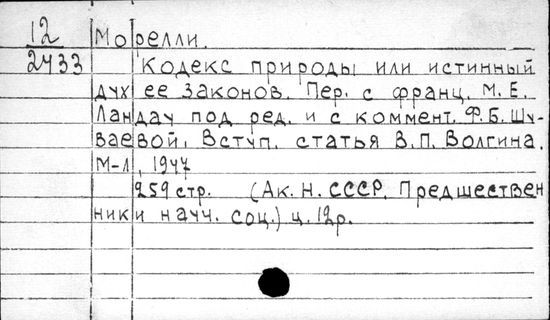 12 Морелли.
2433 Кодекс природы или истинный
дух ее законов. Пер. с франц. М. Е.
Ландау под ред. и с коммент. Ф. Б. Шу-
ваевой. Вступ. статья В. П. Волгина.
М-Л, 1947
259 стр. (Ак. Н. СССР. Предшествен
ники науч. соц.) ц. 12р.